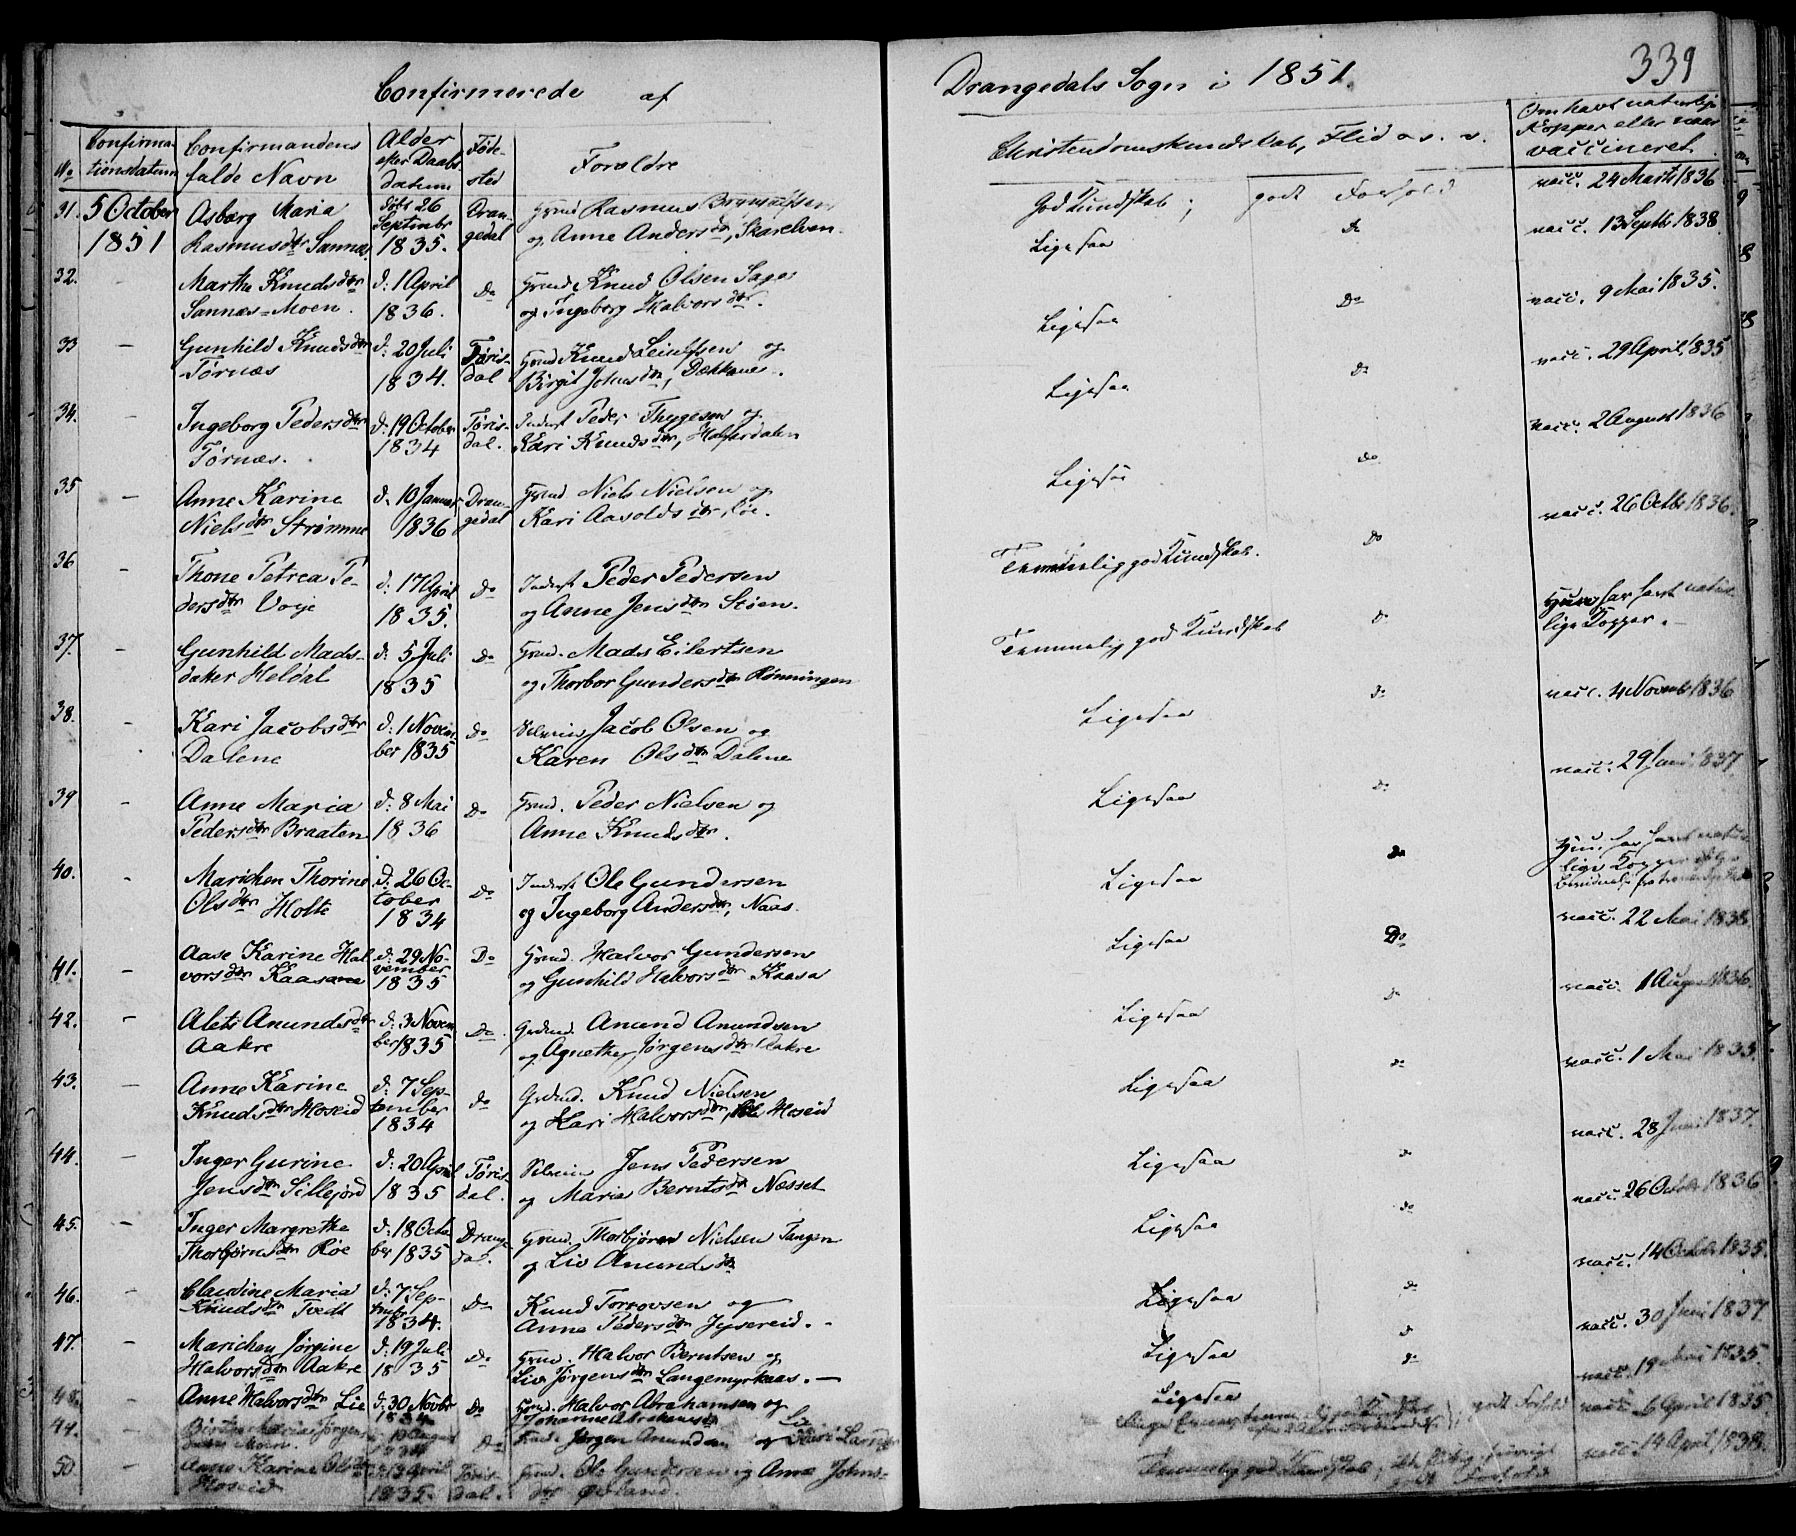 Confirmerede af
Drangedals Sogn i 1851.
339
No
Confirma-
tionsdatum
Confirmandens
fulde Navn
Alder
efter Daabs
datum
Føde-
sted
Forældre
Christendomskundskab, Flid o. s. v.
Om havt naturlige
Kopper eller naar
vaccineret.
31.
5 October
1851
Asbørg Maria
Rasmusdtr Sannæs
26
Septembr
1835.
Dran-
gedal
Rasmus
og Anne Andersdtr,
God Kundskab; godt Forhold
vacc. 24 Marts 1836
32.
Marthe Knudsdtr
Sannæs-Moen.
d: 1 April
1836.
do
Knud Olsen
og Ingeborg Halvorsdtr.
Ligesaa
do
vacc. 13 Septb 1838
33
Gunhild Knudsdtr
Tørnæs
d: 20 Juli
1834.
Tøris-
dal
Grmd Knud Leiulfsen og
Birgit Johnsdtr,
Ligesaa
do
vacc. 9 Mai 1835.
34.
Ingeborg Pedersdtr
Tørnæs.
d: 19 October
1834
Tøris-
dal.
Inderst Peder Thygesen og
Kari Knudsdtr,
Ligesaa
do
vacc. 29 April 1835
35
Anne Karine
Nielsdtr Strømme
d: 10 Januar
1836
Dran-
gedal
Grmd Niels Nielsen og
Kari Aavoldsdtr, Roe.
Ligesaa
do
vacc. 2 August 1836
36
Thone Petrea Pe-
dersdtr Voje
d: 17 April
1835.
do
Inderst Peder Pedersen
og Anne Jensdtr Stöen.
Temmelig god Kundskab.
do
vacc. 26 Octb 1836.
37.
Gunhild Mads-
datter Heldal
d: 5 Juli
1835
do
Grmd. Mads Eilertsen
og Thorbor Gundersdtr Rönningen
Temmelig god Kundskab
do
Hun har havt natur-
lige Kopper.
38.
Kari Jacobsdtr
Dalene
d: 1 Novem-
ber 1835
do
Jacob Olsen og
Karen Olsdtr Dalene
Ligesaa
do
vacc. 4 Novemb 1836
39
Anne Maria
Pedersdtr Braaten
d: 8 Mai
1836
do
Grmd. Peder Nielsen og
Anne Knudsdtr.
Ligesaa
do
vacc. 29 Juni 1837
40.
Marichen Thorine
Olsdtr Holte
d: 26 Oc-
tober
1834
do
Inderst Ole Gundersen
og Ingeborg Andersdtr, Naas.
Ligesaa
do
Hun har havt natur-
lige Kopper
41.
Aase Karine Hal-
vorsdtr Kaasane
d: 29 No-
vember
1835
Do
Grmd. Halvor Gundersen
og Gunhild Halvorsdtr Kaasa
Ligesaa
Do
vacc. 22 Mai 1836
42.
Alets Anundsdtr
Aakre
d: 3 Novem-
ber 1835
do
Grdmd. Anund Anundsen
og Agnethe Jörgensdtr Aakre
Ligesaa
do
vacc. 1 August 1836.
43.
Anne Karine
Knudsdtr Moseid
d: 7 Sep-
tember
1834
do
Grdmd. Knud Nielsen
og Kari Halvorsdtr, Moseid
Ligesaa
do
vacc. 1 Mai 1835.
44.
Inger Gurine
Jensdtr Sillejord
d: 20 April
1835
Tøris-
dal.
Jens Pedersen
og Maria Berntsdtr Næsset
Ligesaa
do
vacc. 28 Juni 1837.
45.
Inger Margrethe
Thorbjørnsdtr Roe
d: 18 Octo-
ber 1835
Drange-
dal.
Grmd. Thorbjören Nielsen Tangen
og Liv Anundsdtr
Ligesaa
do
vacc. 26 Octobr 1836
46.
Claudine Maria
Knudsdtr Tvedt
d: 7 Sep-
tembr
1834.
do
Knud Torrovsen og
Anne Pedersdtr Jysereid.
Ligesaa
do
vacc. 14 Octobr 1835.
47.
Marichen Jörgine
Halvorsdtr Aakre
d: 19 Juli
1835
do
Grmd. Halvor Berntsen og
Liv Jörgensdtr Langemyrkaas.
Ligesaa
do
vacc. 30 Juni 1837.
48.
Anne Halvorsdtr Lie
d: 30 Novbr
1834
do
Grmd. Halvor Abrahamsen og
Johanne Abrahamsdtr Lie
Ligesaa
do
vacc. 19 Mai 1835.
49.
Maria Jörgens-
August
do
Jørgen Anundsen og Kari Larsdtr
godt Forhold
vacc. 6 April 1835.
50
Anne Karine Olsdtr
Moseid
13 April
1835.
Töris-
dal.
Grmd. Ole Gundersen og Anne Johns-
dtr
Temmelig god Kundskab,
vacc. 14 April 1838.